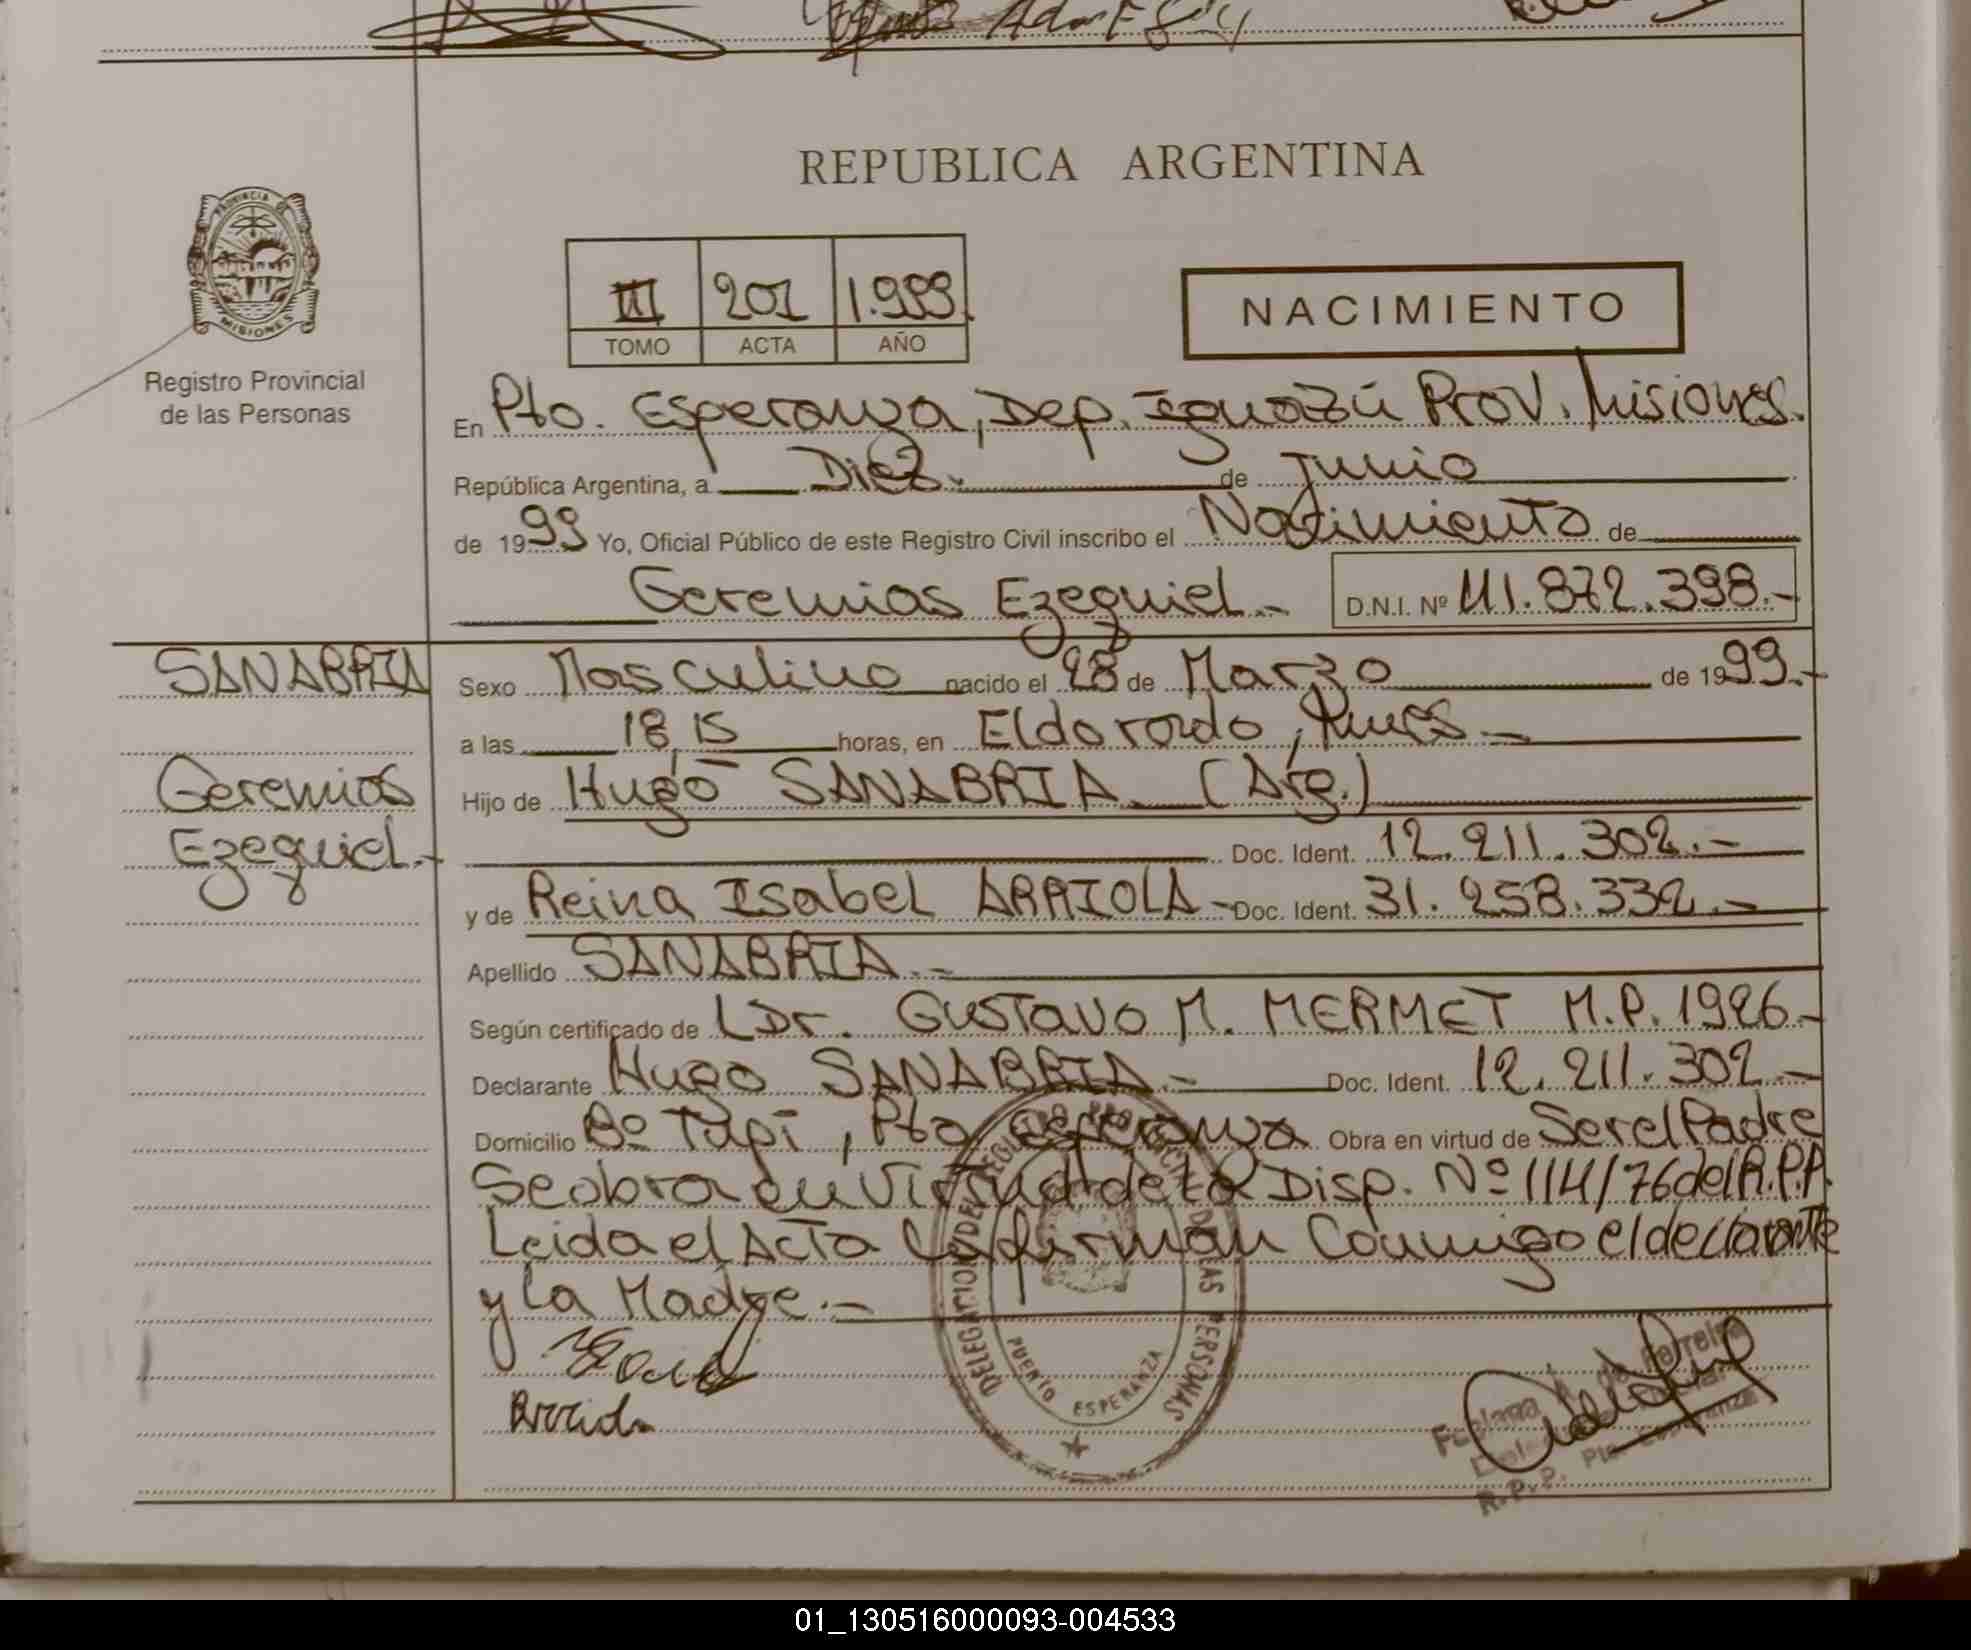 REPUBLICA ARGENTINA
PROVINCIA DE
MISIONES
Registro Provincial
de las Personas
III 201 1.999.
TOMO ACTA AÑO
NACIMIENTO
En Pto. Esperanza, Dep. Iguazú Prov. Misiones.
República Argentina, a Diez.- de Junio
de 1999 Yo, Oficial Público de este Registro Civil inscribo el Nacimiento de
Geremias Ezequiel.- D.N.I. Nº 41.872.398.-
SANABRIA
Geremias
Ezequiel.-
Sexo Masculino nacido el 28 de Marzo de 1999.-
a las 18,15 horas, en Eldorado, Mnes.-
Hijo de Hugo SANABRIA (Arg.)
Doc. Ident. 12.211.302.-
y de Reina Isabel ARRIOLA - Doc. Ident. 31.258.332.-
Apellido SANABRIA.-
Según certificado de Dr. GUSTAVO M. MERMET M.P. 1926.-
Declarante Hugo SANABRIA.- Doc. Ident. 12.211.302.-
Domicilio Bº Tupi, Pto Esperanza Obra en virtud de Ser el Padre
Se obra en Virtud de la Disp. Nº 114/76 del R.P.P.
Leida el Acta la firman Conmigo el declarante
y la Madre.-
DELEGACION DEL REGISTRO PROVINCIAL DE LAS PERSONAS
PUERTO ESPERANZA
de Ferreira
R.P.P. Pto. Esperanza
01_130516000093-004533